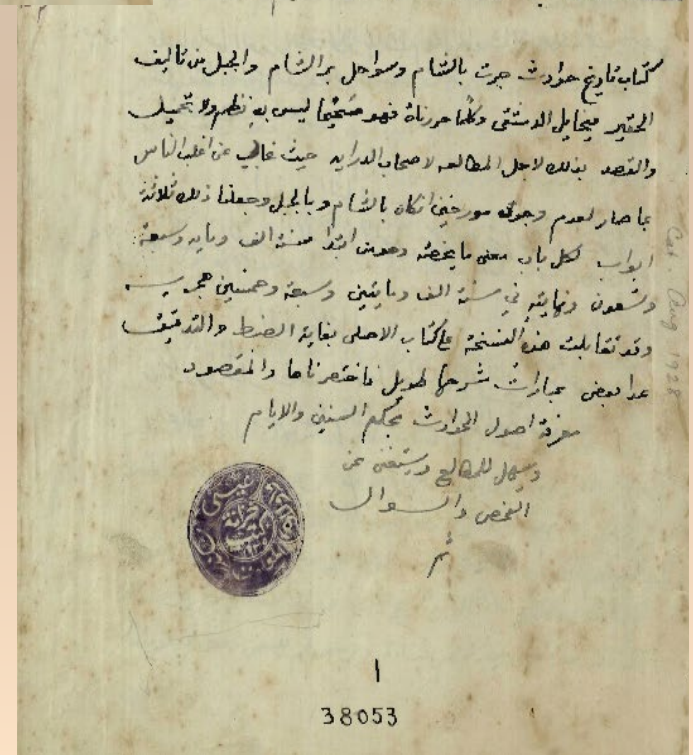 كتاب تاريخ حوادث جرت بالشام وسواحل بر الشام والجبل من تاليف
الحقير ميخايل الدمشقي وكلما حررناه فهو صحيحا ليس به نظم ولا تحميل
والقصد بذلك لاجل المطالعه لاصحاب الدرايه حيث غالب عن اغلب الناس
ما صار لعدم وجود مورخين انكان بالشام و بالجبل وجعلنا ذلك ثلاثة
ابواب لكل باب معنى ما يخصه وهو من ابتدا سنة الف ومايه وسبعة
وتسعون ونهايته في سنة الف ومايتين وسبعة وخمسين هجريه
وقد تقابلت هذه النسخة عا كتاب الاصلى بغاية الضبط والتدقيق
عدا بعض عبارات شرحها طويل فاختصرناها والمقصود
معرفة اصول الحوادث بحكم السنين والايام
ويسهل للمطالع ويستغنى عن
الفحص والسوال
تم
عيسى
خزانة
Cat. Aug 1928
١
38053